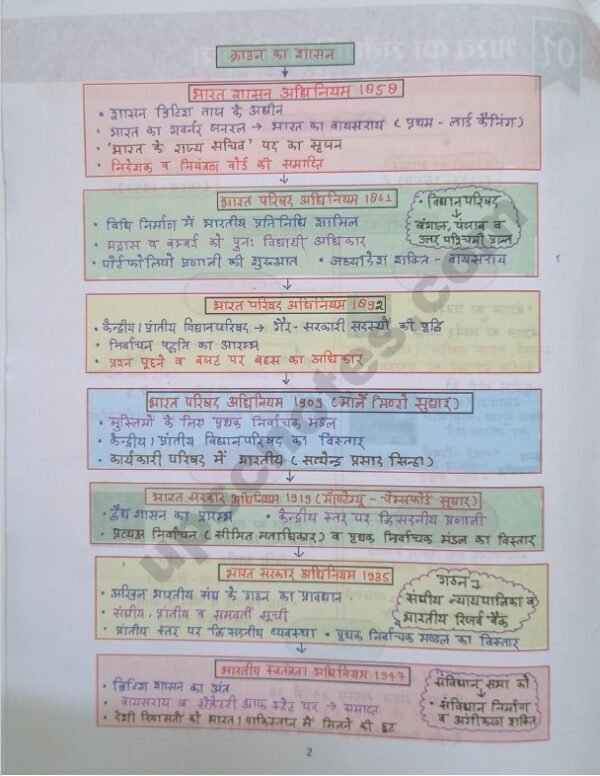 क्राउन का शासन
भारत शासन अधिनियम 1858
• शासन ब्रिटिश ताज के अधीन
• भारत का गवर्नर जनरल → भारत का वायसराय (प्रथम - लार्ड कैनिंग)
• 'भारत के राज्य सचिव' पद का सृजन
• निदेशक व नियंत्रण बोर्ड की समाप्ति
भारत परिषद अधिनियम 1861
• विधि निर्माण में भारतीय प्रतिनिधि शामिल
• मद्रास व बम्बई को पुनः विधायी अधिकार
• पोर्टफोलियो प्रणाली की शुरूआत • अध्यादेश शक्ति - वायसराय
• विधानपरिषद
बंगाल, पंजाब व
उत्तर पश्चिमी प्रान्त
भारत परिषद अधिनियम 1892
• केन्द्रीय/प्रांतीय विधानपरिषद → गैर-सरकारी सदस्यों की वृद्धि
• निर्वाचन पद्धति का आरम्भ
• प्रश्न पूछने व बजट पर बहस का अधिकार
भारत परिषद अधिनियम 1909 (मार्ले मिन्टो सुधार)
• मुस्लिमों के लिए पृथक निर्वाचक मंडल
• केन्द्रीय/प्रांतीय विधानपरिषद का विस्तार
• कार्यकारी परिषद में भारतीय (सत्येन्द्र प्रसाद सिन्हा)
भारत सरकार अधिनियम 1919 (मॉण्टेग्यू - चेम्सफोर्ड सुधार)
• द्वैध शासन का प्रारम्भ • केन्द्रीय स्तर पर द्विसदनीय प्रणाली
• प्रत्यक्ष निर्वाचन (सीमित मताधिकार) व पृथक निर्वाचक मंडल का विस्तार
भारत सरकार अधिनियम 1935
• अखिल भारतीय संघ के गठन का प्रावधान
• संघीय, प्रांतीय व समवर्ती सूची
• प्रांतीय स्तर पर द्विसदनीय व्यवस्था • पृथक निर्वाचक मण्डल का विस्तार
गठन
संघीय न्यायपालिका व
भारतीय रिजर्व बैंक
भारतीय स्वतंत्रता अधिनियम 1947
• ब्रिटिश शासन का अंत
• वायसराय व सेक्रेटरी ऑफ स्टेट पद → समाप्त
• देशी रियासतों को भारत/पाकिस्तान में मिलने की छूट
संविधान सभा को
• संविधान निर्माण
व अंगीकरण शक्ति
2
upscnotes.com